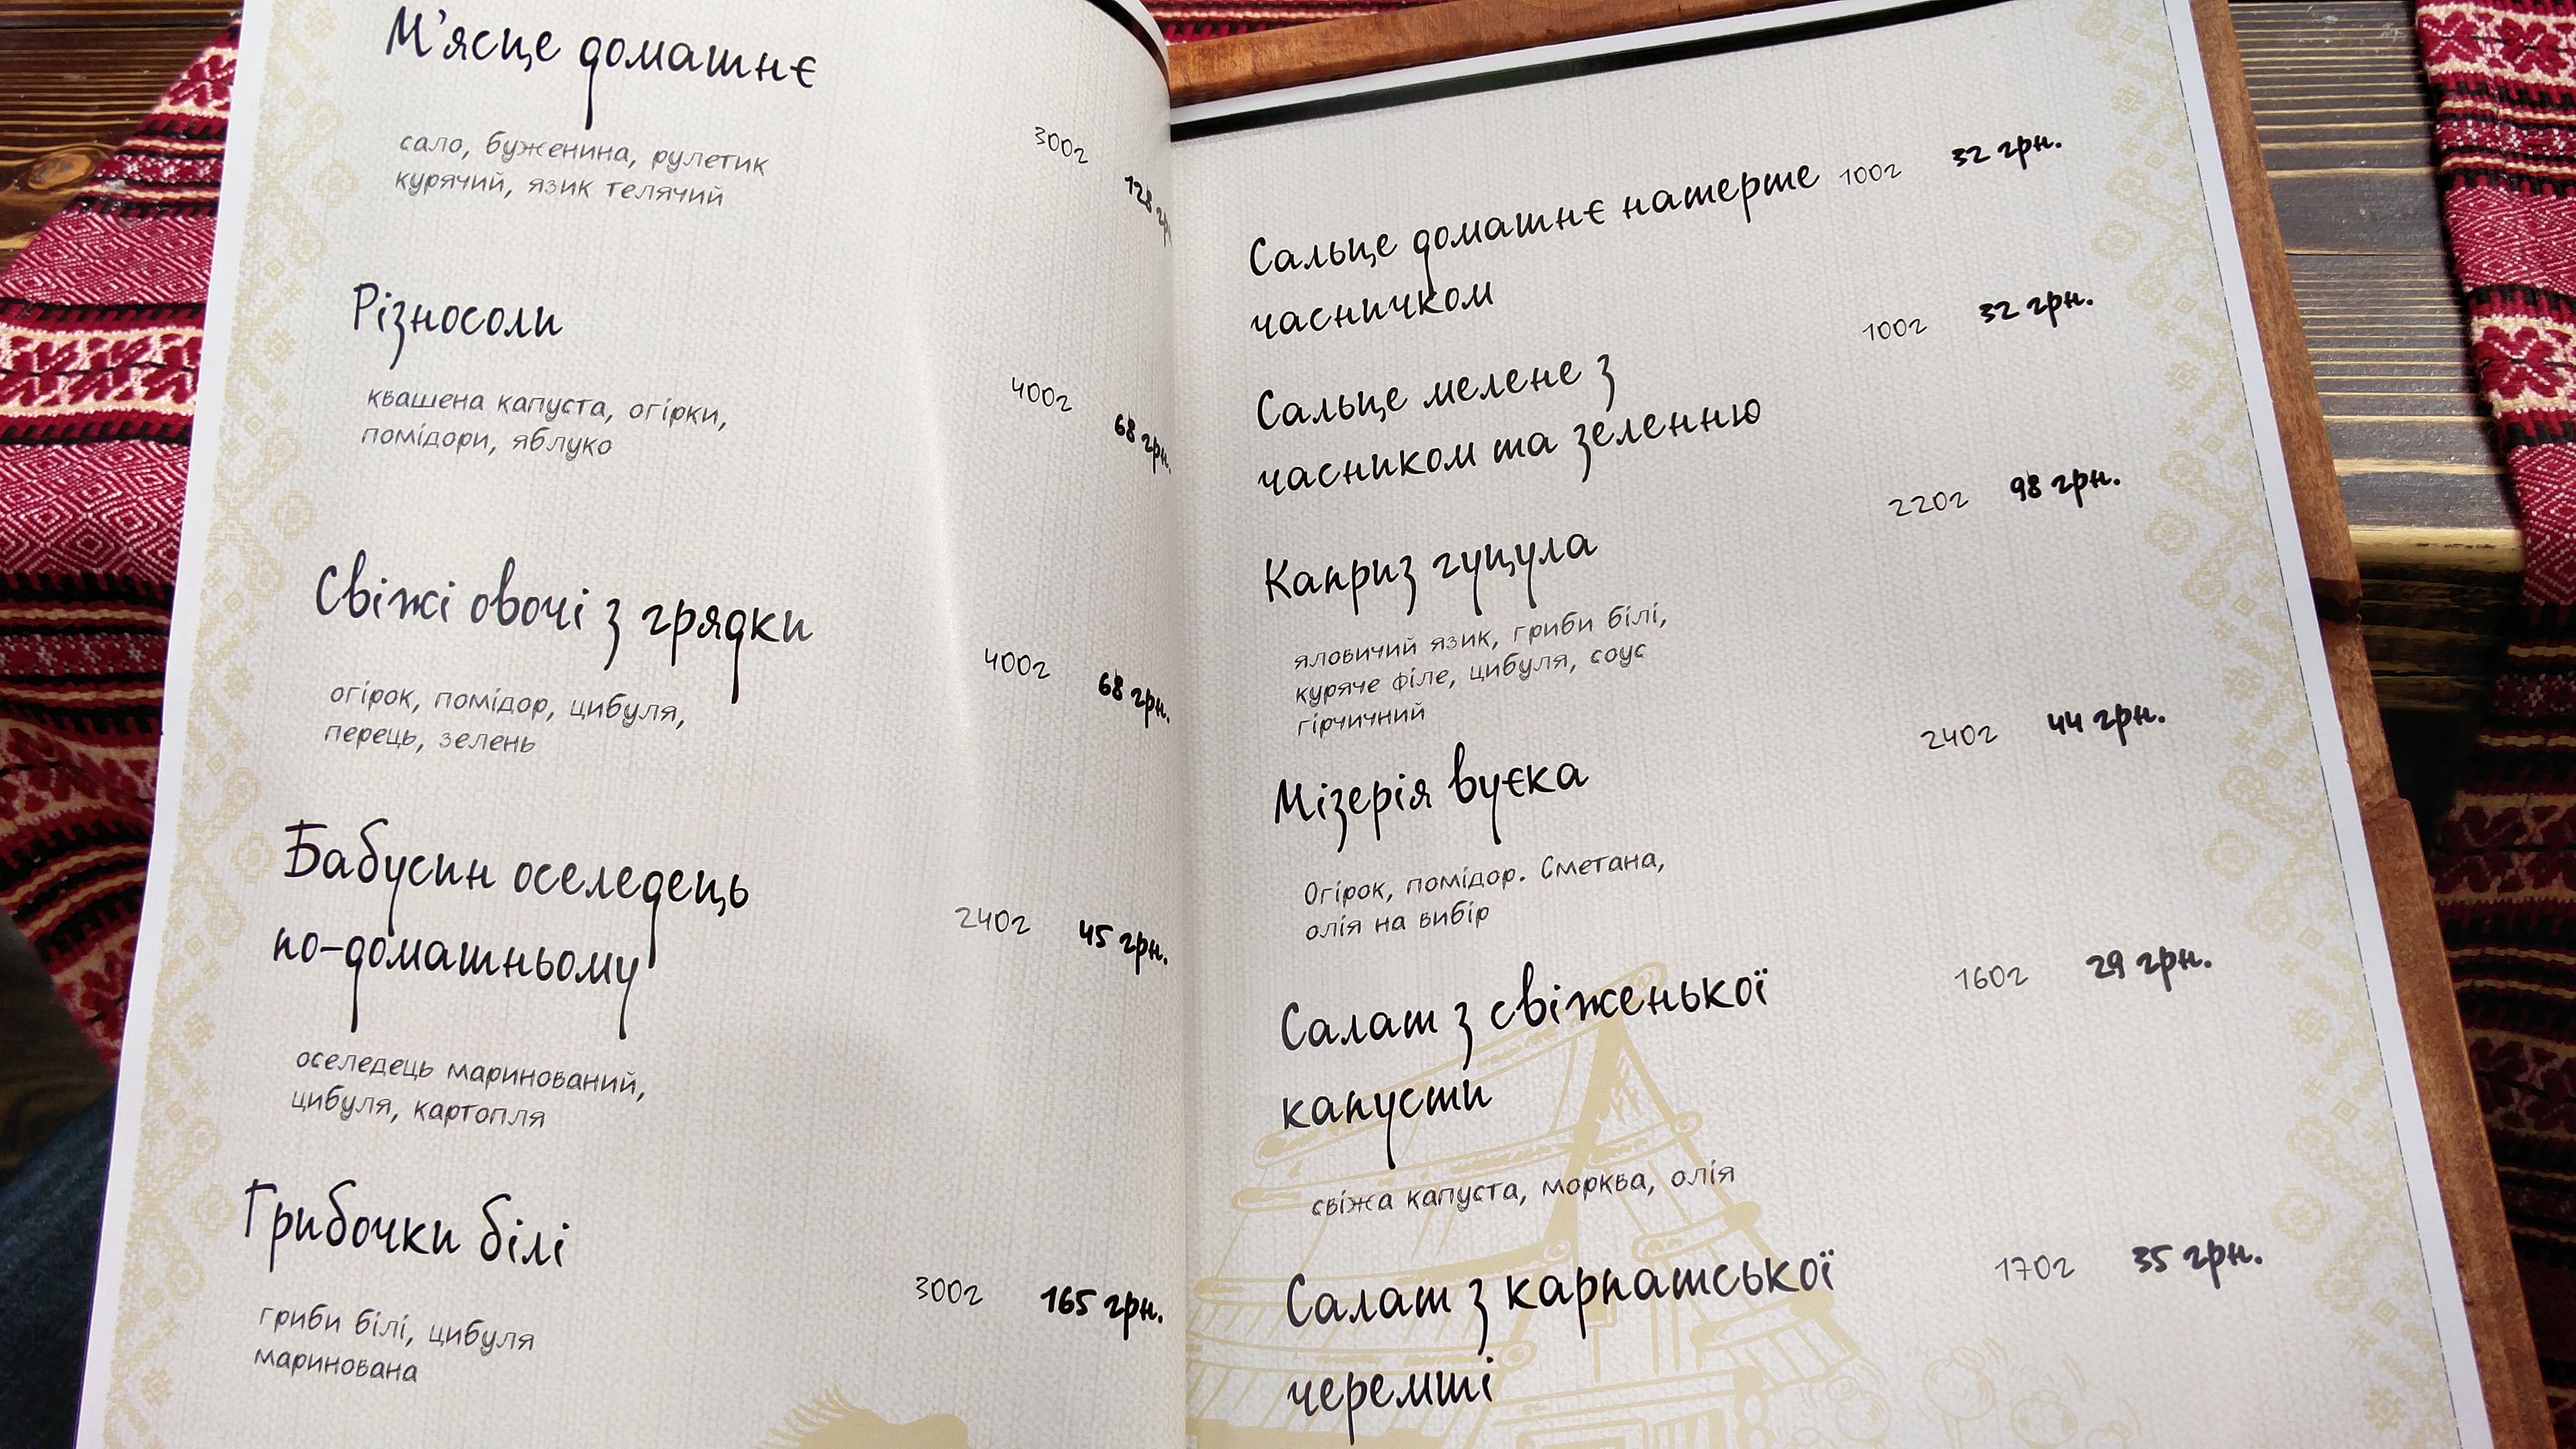 М'ясце домашнє
300г
128 гр
сало, буженина, рулетик
курячий, язик телячий
Різносоли
400г
68 грн.
квашена капуста, огірки,
помідори, яблуко
Свіжі овочі з грядки
400г
68 грн.
огірок, помідор, цибуля,
перець, зелень
Бабусин оселедець
по-домашньому
240г
45 грн.
оселедець маринований,
цибуля, картопля
Грибочки білі
300г
165 грн.
гриби білі, цибуля
маринована
Сальце домашнє натерте 100г 32 грн.
часничком
Сальце мелене з 100г 32 грн.
часником та зеленню
Каприз гуцула 220г 98 грн.
яловичий язик, гриби білі,
куряче філе, цибуля, соус
гірчичний
Мізерія вуєка 240г 44 грн.
Огірок, помідор. Сметана,
олія на вибір
Салат з свіженької 160г 29 грн.
капусти
свіжа капуста, морква, олія
Салат з карпатської 170г 35 грн.
черемші